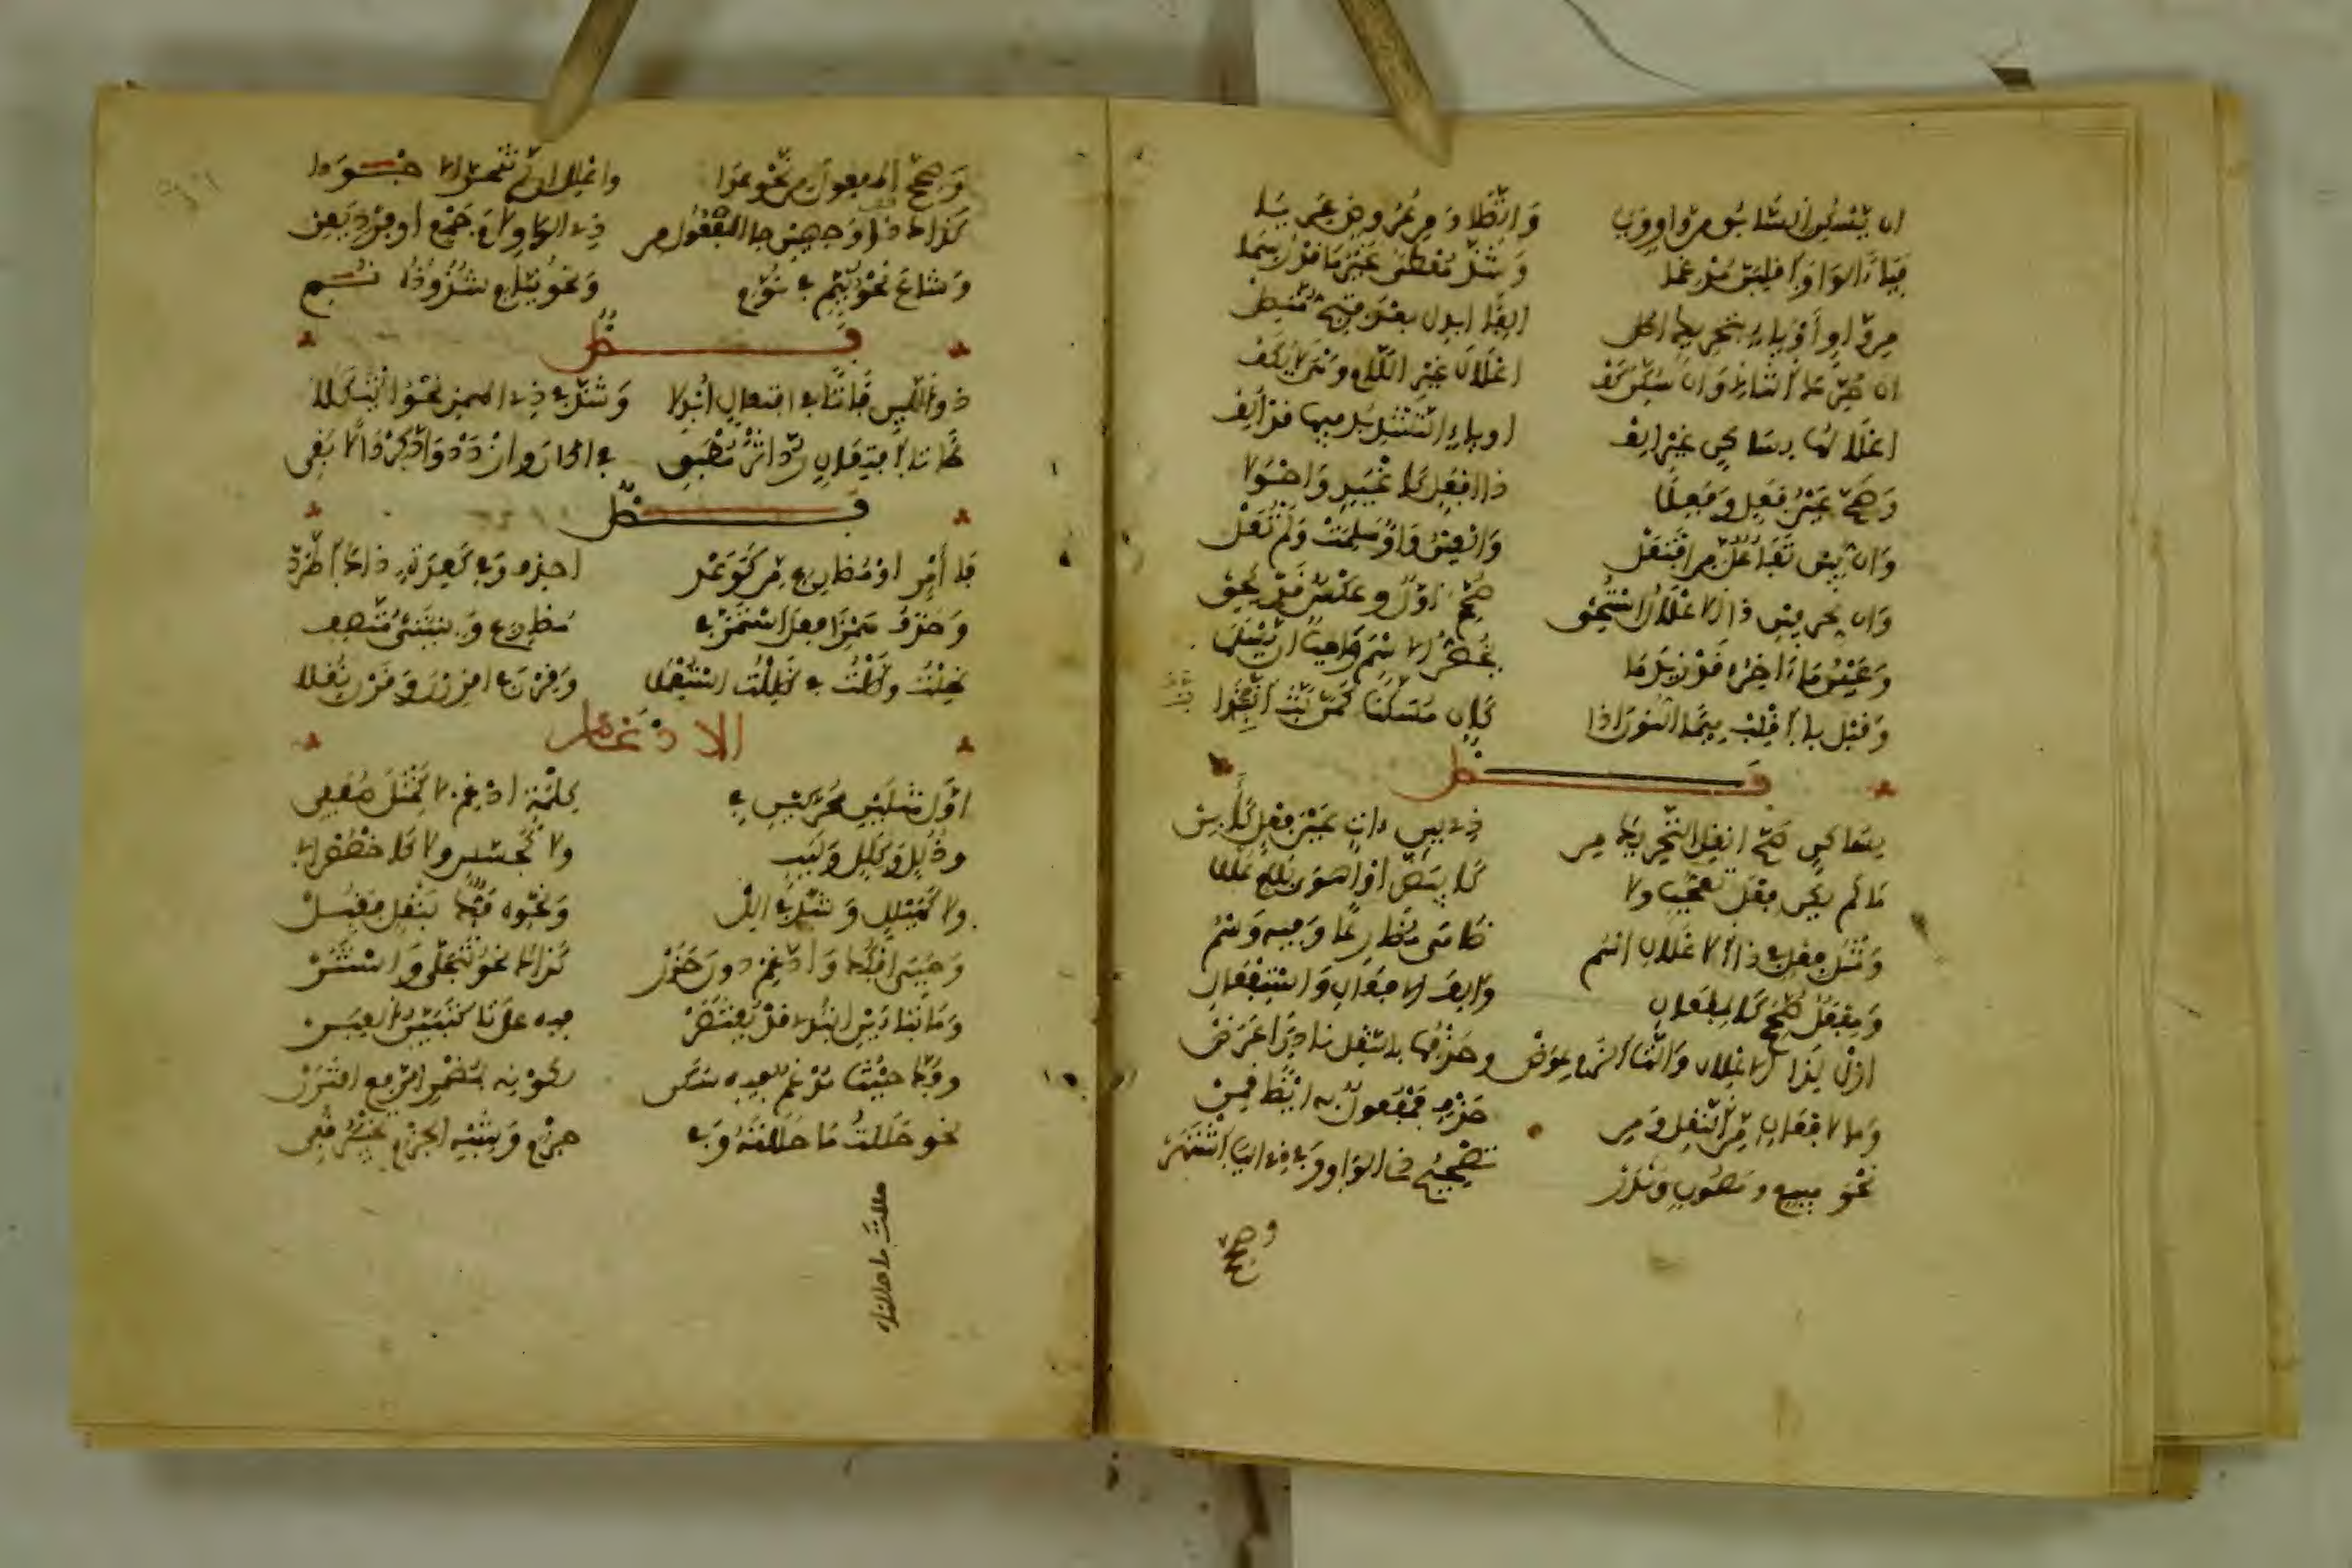 ان يسكن السابق من واو ويا واتصلا ومن عروض عريا
فياء الواو اقلبن مدغما وشذ معطى غير ما قد رسما
من واو او ياء بتحريك اصل الفا ابدل بعد فتح متصل
ان حرك التالي وان سكن كف اعلال غير اللام وهي لا يكف
اعلالها بساكن غير الف او ياء التشديد فيها قد الف
وصح عين فعل وفعلا ذا افعل كاغيد واحولا
وان يبن تفاعل من افتعل والعين واو سلمت ولم تعل
وان لحرفين ذا الاعلال استحق صحح اول وعكس قد يحق
وعين ما ءاخره قد زيد ما يخص الاسم واجب ان يسلما
وقبل با اقلب ميما النون اذا كان مسكنا كمن بت انبذا
فصل
لساكن صح انقل التحريك من ذي لين ات عين فعل كابن
ما لم يكن فعل تعجب ولا كابيض او اهوى بلام عللا
ومثل فعل في ذا الاعلال اسم ضاهى مضارعا وفيه وسم
ومفعل صحح كالمفعال والف الافعال واستفعال
ازل لذا الاعلال والتا الزم عوض وحذفها بالنقل نادرا عرض
وما لافعال من النقل ومن حذف فمفعول به ايضا قمن
نحو مبيع ومصون وندر تصحيح ذي الواو وفي ذي اليا اشتهر
وصح
وصحح المفعول من نحو عدا واعلل ان لم تتحر الاجودا
كذاك ذا وجهين جا الفعول من ذي الواو لام جمع او فرد يعن
وشاع نحو نيم في نوم ونحو نيام شذوذه نمي
فصل
ذو اللين فا تا في افتعال ابدلا وشذ في ذي الهمز نحو ائتكلا
طا تا افتعال رد اثر مطبق في ادان وازدد وادكر دالا بقي
فصل
فا امر او مضارع من كوعد احذف وفي كعدة ذاك اطرد
وحذف همز افعل استمر في مضارع وبنيتي متصف
ظلت وظلت في ظللت استعملا وقرن في اقررن وقرن نقلا
الادغام
اول مثلين محركين في كلمة ادغم لا كمثل صفف
وذلل وكلل ولبب ولا كجسس ولا كاخصص ابي
ولا كهيلل وشذ في الل ونحوه فك بنقل فقبل
وحيي افكك وادغم دون حذر كذاك نحو تتجلى واستتر
وما بتاءين ابتدي قد يقتصر فيه على تا كتبين العبر
وفك حيث مدغم فيه سكن لكونه بمضمر الرفع اقترن
نحو حللت ما حللته وفي جزم وشبه الجزم تخيير قفي
حللت ما حللته